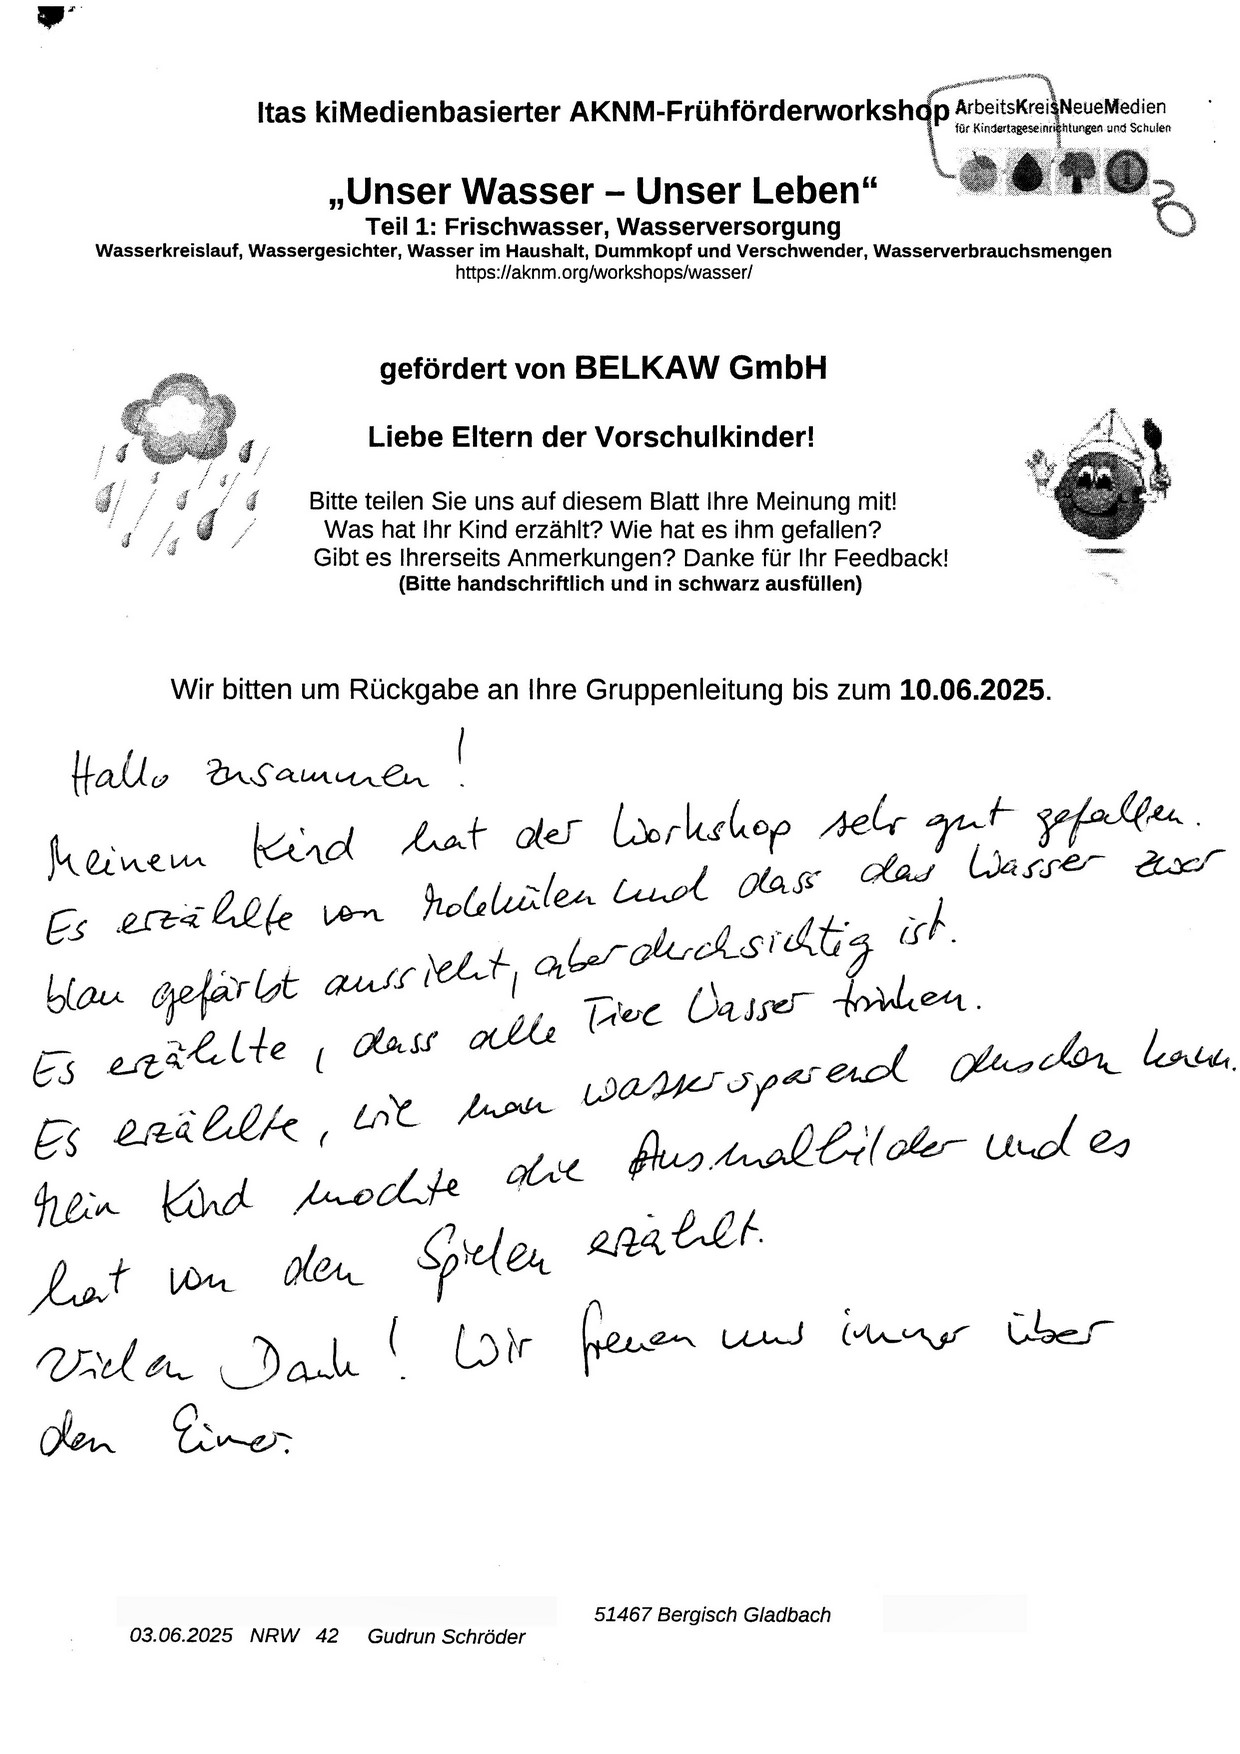 Itas kiMedienbasierter AKNM-Frühförderworkshop
ArbeitsKreisNeueMedien
für Kindertageseinrichtungen und Schulen
„Unser Wasser – Unser Leben“
Teil 1: Frischwasser, Wasserversorgung
Wasserkreislauf, Wassergesichter, Wasser im Haushalt, Dummkopf und Verschwender, Wasserverbrauchsmengen
https://aknm.org/workshops/wasser/
gefördert von BELKAW GmbH
Liebe Eltern der Vorschulkinder!
Bitte teilen Sie uns auf diesem Blatt Ihre Meinung mit!
Was hat Ihr Kind erzählt? Wie hat es ihm gefallen?
Gibt es Ihrerseits Anmerkungen? Danke für Ihr Feedback!
(Bitte handschriftlich und in schwarz ausfüllen)
Wir bitten um Rückgabe an Ihre Gruppenleitung bis zum 10.06.2025.
Hallo zusammen!
Meinem Kind hat der Workshop sehr gut gefallen.
Es erzählte von Molekülen und dass das Wasser zwar
blau gefärbt aussieht, aber durchsichtig ist.
Es erzählte, dass alle Tiere Wasser trinken.
Es erzählte, wie man wassersparend duschen kann.
Mein Kind mochte die Ausmalbilder und es
hat von den Spielen erzählt.
Vielen Dank! Wir freuen uns immer über
den Eimer.
51467 Bergisch Gladbach
03.06.2025 NRW 42 Gudrun Schröder